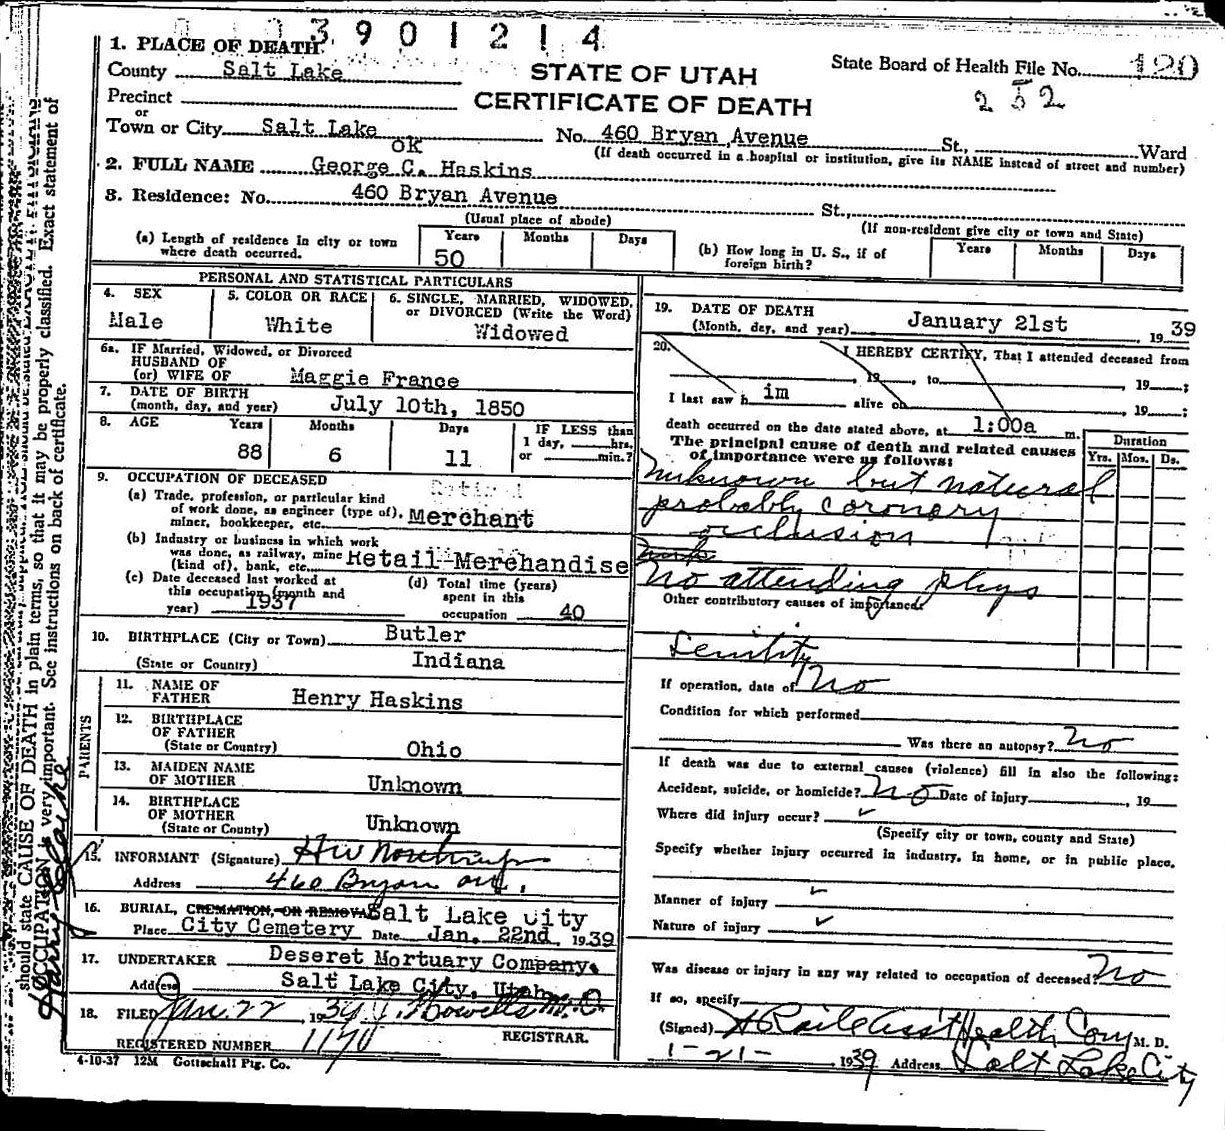 3901214
1. PLACE OF DEATH
County Salt Lake
STATE OF UTAH
CERTIFICATE OF DEATH
State Board of Health File No. 120
252
Precinct
or
Town or City Salt Lake No. 460 Bryan Avenue St., Ward
(If death occurred in a hospital or institution, give its NAME instead of street and number)
OK
2. FULL NAME George C. Haskins
3. Residence: No. 460 Bryan Avenue St.,
(Usual place of abode)
(If non-resident give city or town and State)
(a) Length of residence in city or town where death occurred.
Years Months Days
50
(b) How long in U. S., if of foreign birth?
Years Months Days
PERSONAL AND STATISTICAL PARTICULARS
4. SEX
Male
5. COLOR OR RACE
White
6. SINGLE, MARRIED, WIDOWED, or DIVORCED (Write the Word)
Widowed
6a. IF Married, Widowed, or Divorced
HUSBAND OF
(or) WIFE OF Maggie France
7. DATE OF BIRTH
(month, day, and year) July 10th, 1850
8. AGE Years Months Days
88 6 11
IF LESS than
1 day, hrs.
or min.?
9. OCCUPATION OF DECEASED
(a) Trade, profession, or particular kind
of work done, as engineer (type of),
miner, bookkeeper, etc. Merchant
(b) Industry or business in which work
was done, as railway, mine
(kind of), bank, etc. Retail Merchandise
(c) Date deceased last worked at
this occupation (month and
year) 1937
(d) Total time (years)
spent in this
occupation 40
10. BIRTHPLACE (City or Town) Butler
(State or Country) Indiana
PARENTS
11. NAME OF
FATHER Henry Haskins
12. BIRTHPLACE
OF FATHER
(State or Country) Ohio
13. MAIDEN NAME
OF MOTHER Unknown
14. BIRTHPLACE
OF MOTHER
(State or County) Unknown
15. INFORMANT (Signature) HW
Address 460 Bryan ave.
16. BURIAL, CREMATION, OR REMOVAL Salt Lake City
Place City Cemetery Date Jan. 22nd, 1939
17. UNDERTAKER Deseret Mortuary Company.
Address Salt Lake City, Utah
18. FILED Jan. 22 1939 M.D.
REGISTRAR.
REGISTERED NUMBER 1170
4-10-37 12M Gottschall Ptg. Co.
19. DATE OF DEATH
(Month, day, and year) January 21st 1939
20. I HEREBY CERTIFY, That I attended deceased from
, 19 , to , 19 ;
I last saw h im alive on , 19 ;
death occurred on the date stated above, at 1:00a m.
The principal cause of death and related causes
of importance were as follows:
Duration
Yrs. Mos. Ds.
Unknown but natural
probably coronary
occlusion
No attending phys
Other contributory causes of importance:
Senility
If operation, date of No
Condition for which performed
Was there an autopsy? No
If death was due to external causes (violence) fill in also the following:
Accident, suicide, or homicide? No Date of injury , 19
Where did injury occur?
(Specify city or town, county and State)
Specify whether injury occurred in industry, in home, or in public place.
Manner of injury
Nature of injury
Was disease or injury in any way related to occupation of deceased? No
If so, specify
(Signed) Asst Health Comr M. D.
1-21- 1939 Address Salt Lake City
should state CAUSE OF DEATH in plain terms, so that it may be properly classified. Exact statement of
OCCUPATION is very important. See instructions on back of certificate.